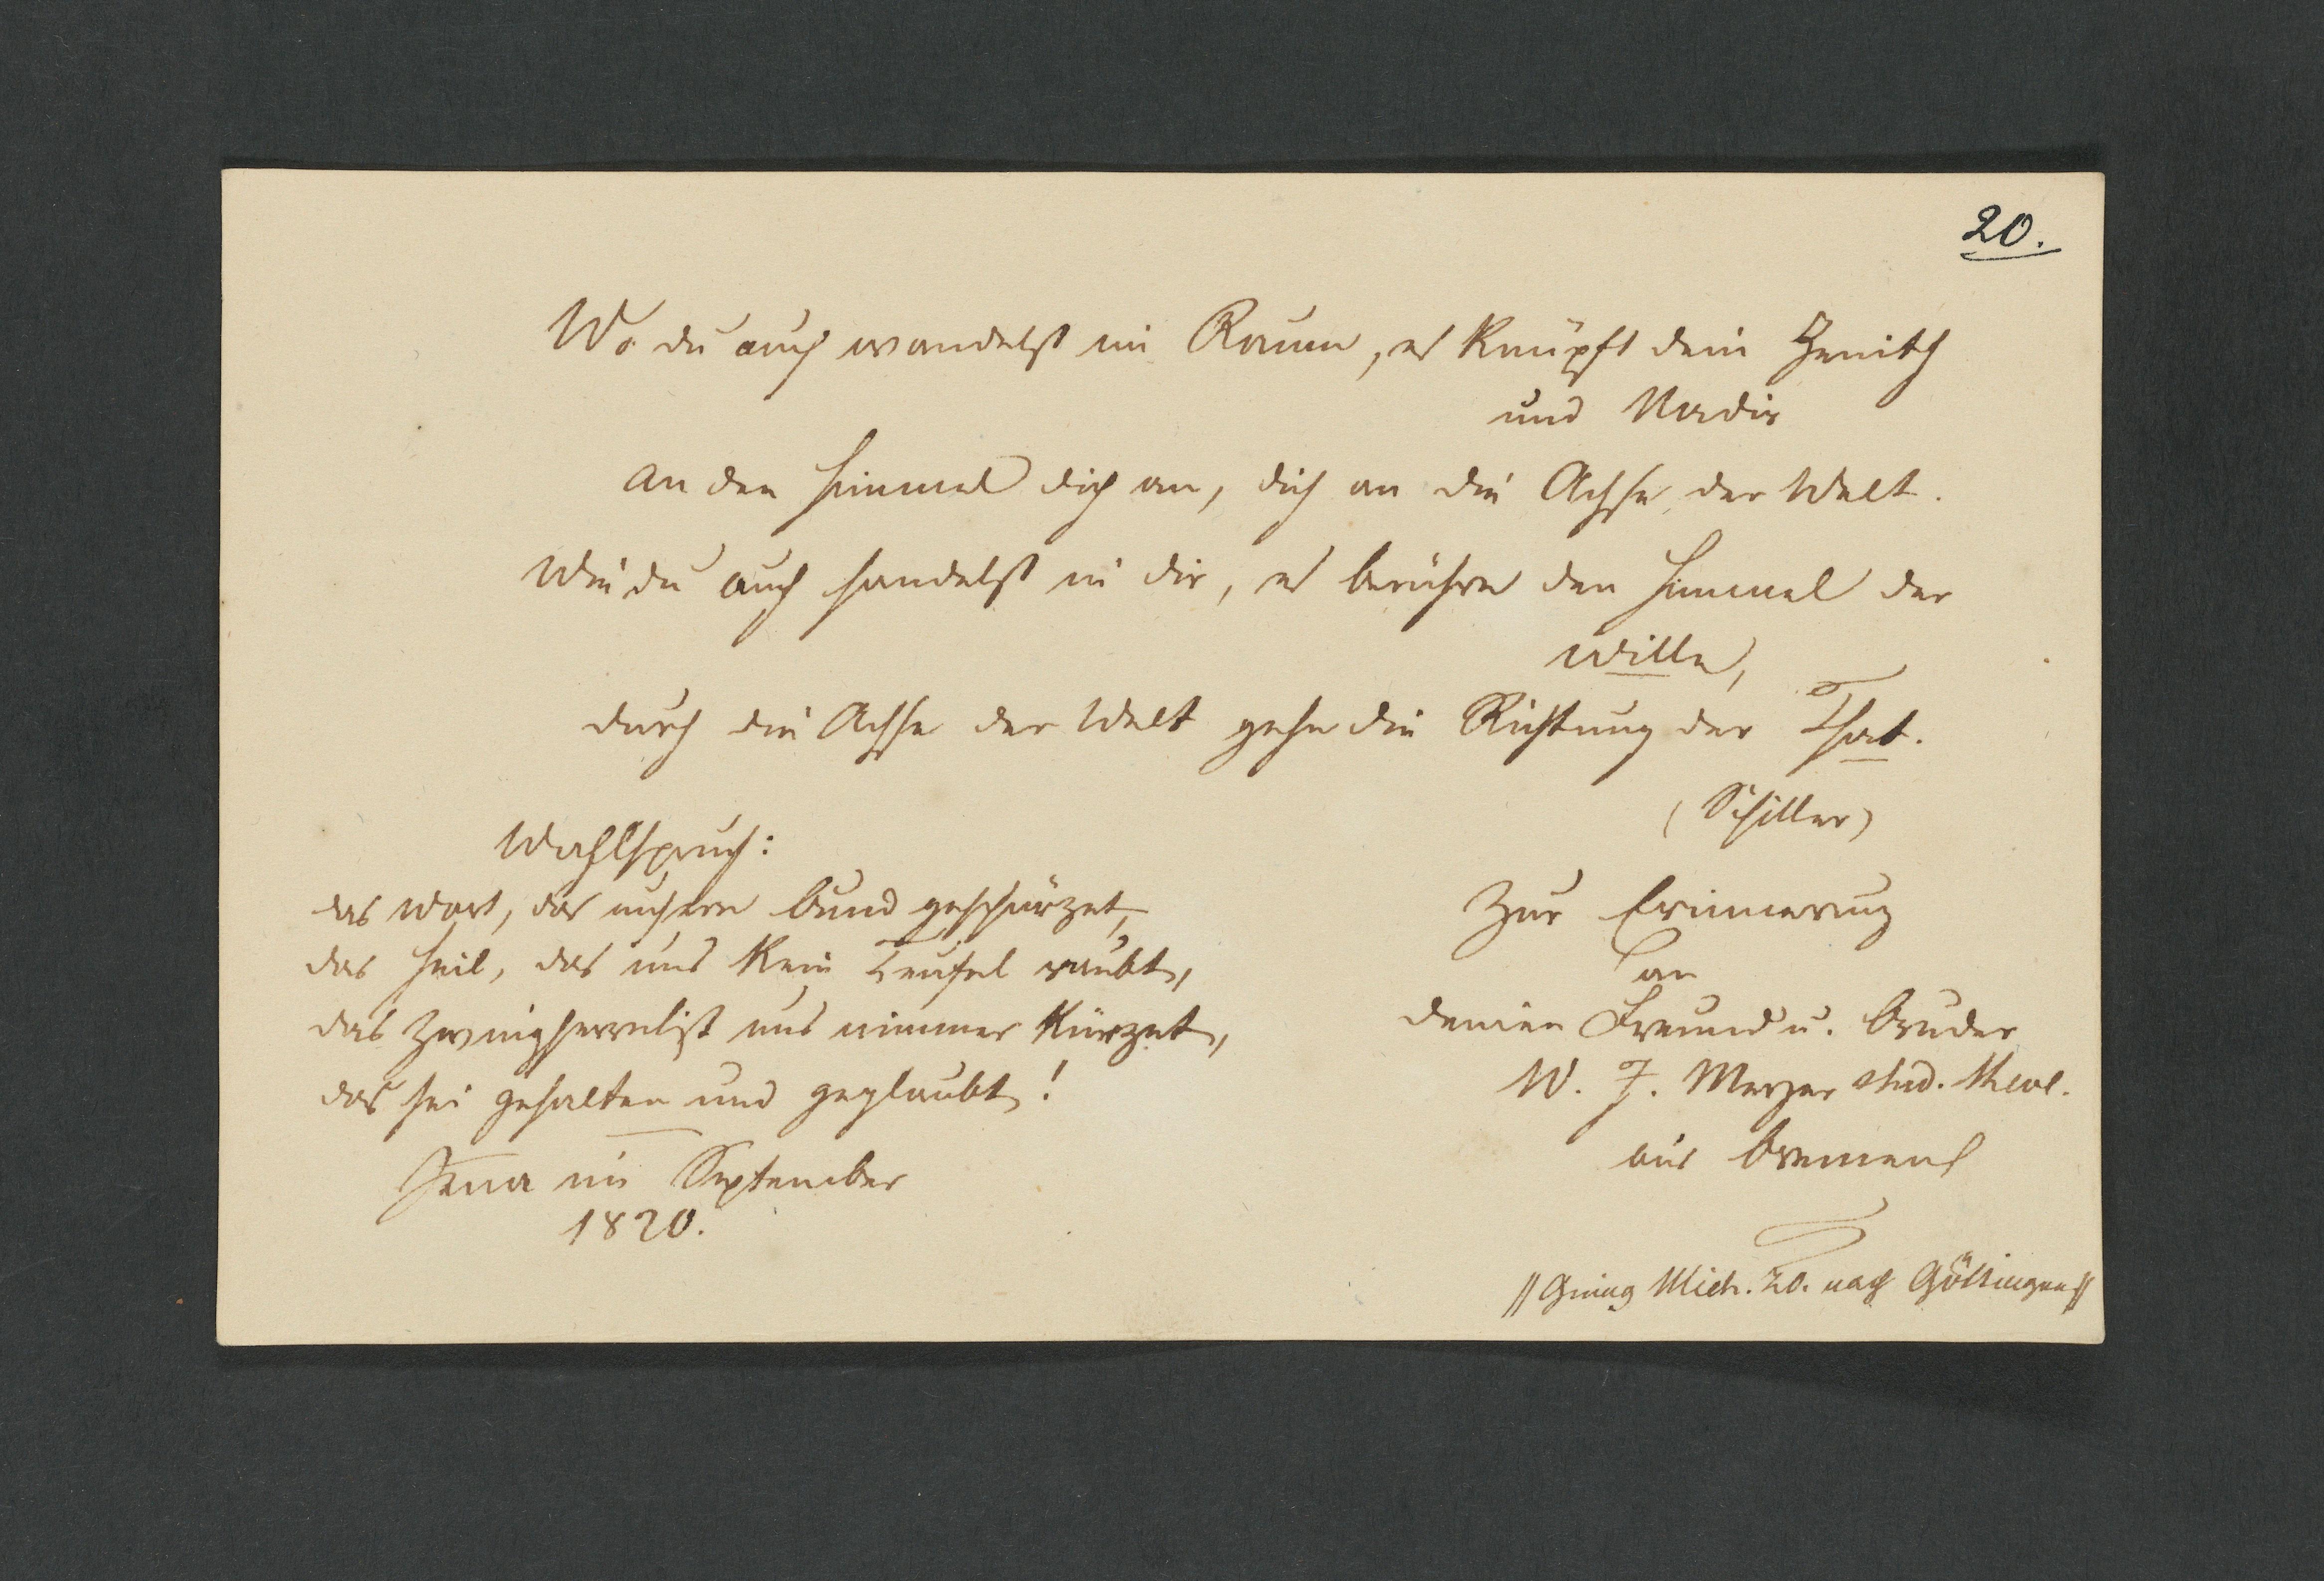 20.
Wo du auch wandelst im Raum, es knüpft dein Zenith
und Nadir
an den Himmel dich an, dich an die Achse der Welt.
Wie du auch handelst in dir, es berühre den Himmel der
Wille,
durch die Achse der Welt gehe die Richtung der That.
(Schiller)
Wahlspruch:
das Wort, das unsern Bund geschürzet,
das Heil, das uns kein Teufel raubt,
das Zwingherrnlist uns nimmer kürzet,
das sei gehalten und geglaubt!
Jena im September
1820.
Zur Erinnerung
an
deinen Freund u. Bruder
W. F. Meyer stud. theol.
aus Bremen
|| Ging Mich. 20. nach Göttingen ||